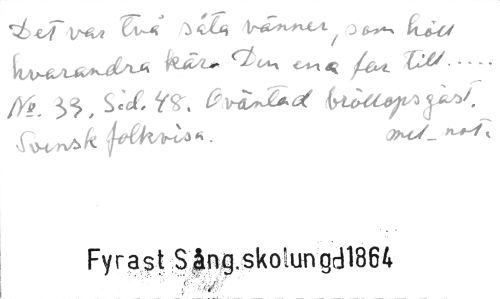 Det var två såta vänner, som höll
hvarandra kär. Den ena far till.....
No. 33. Sid. 48. Oväntad bröllopsgäst.
Svensk folkvisa. med not.
Fyrast Sång.skolungd1864